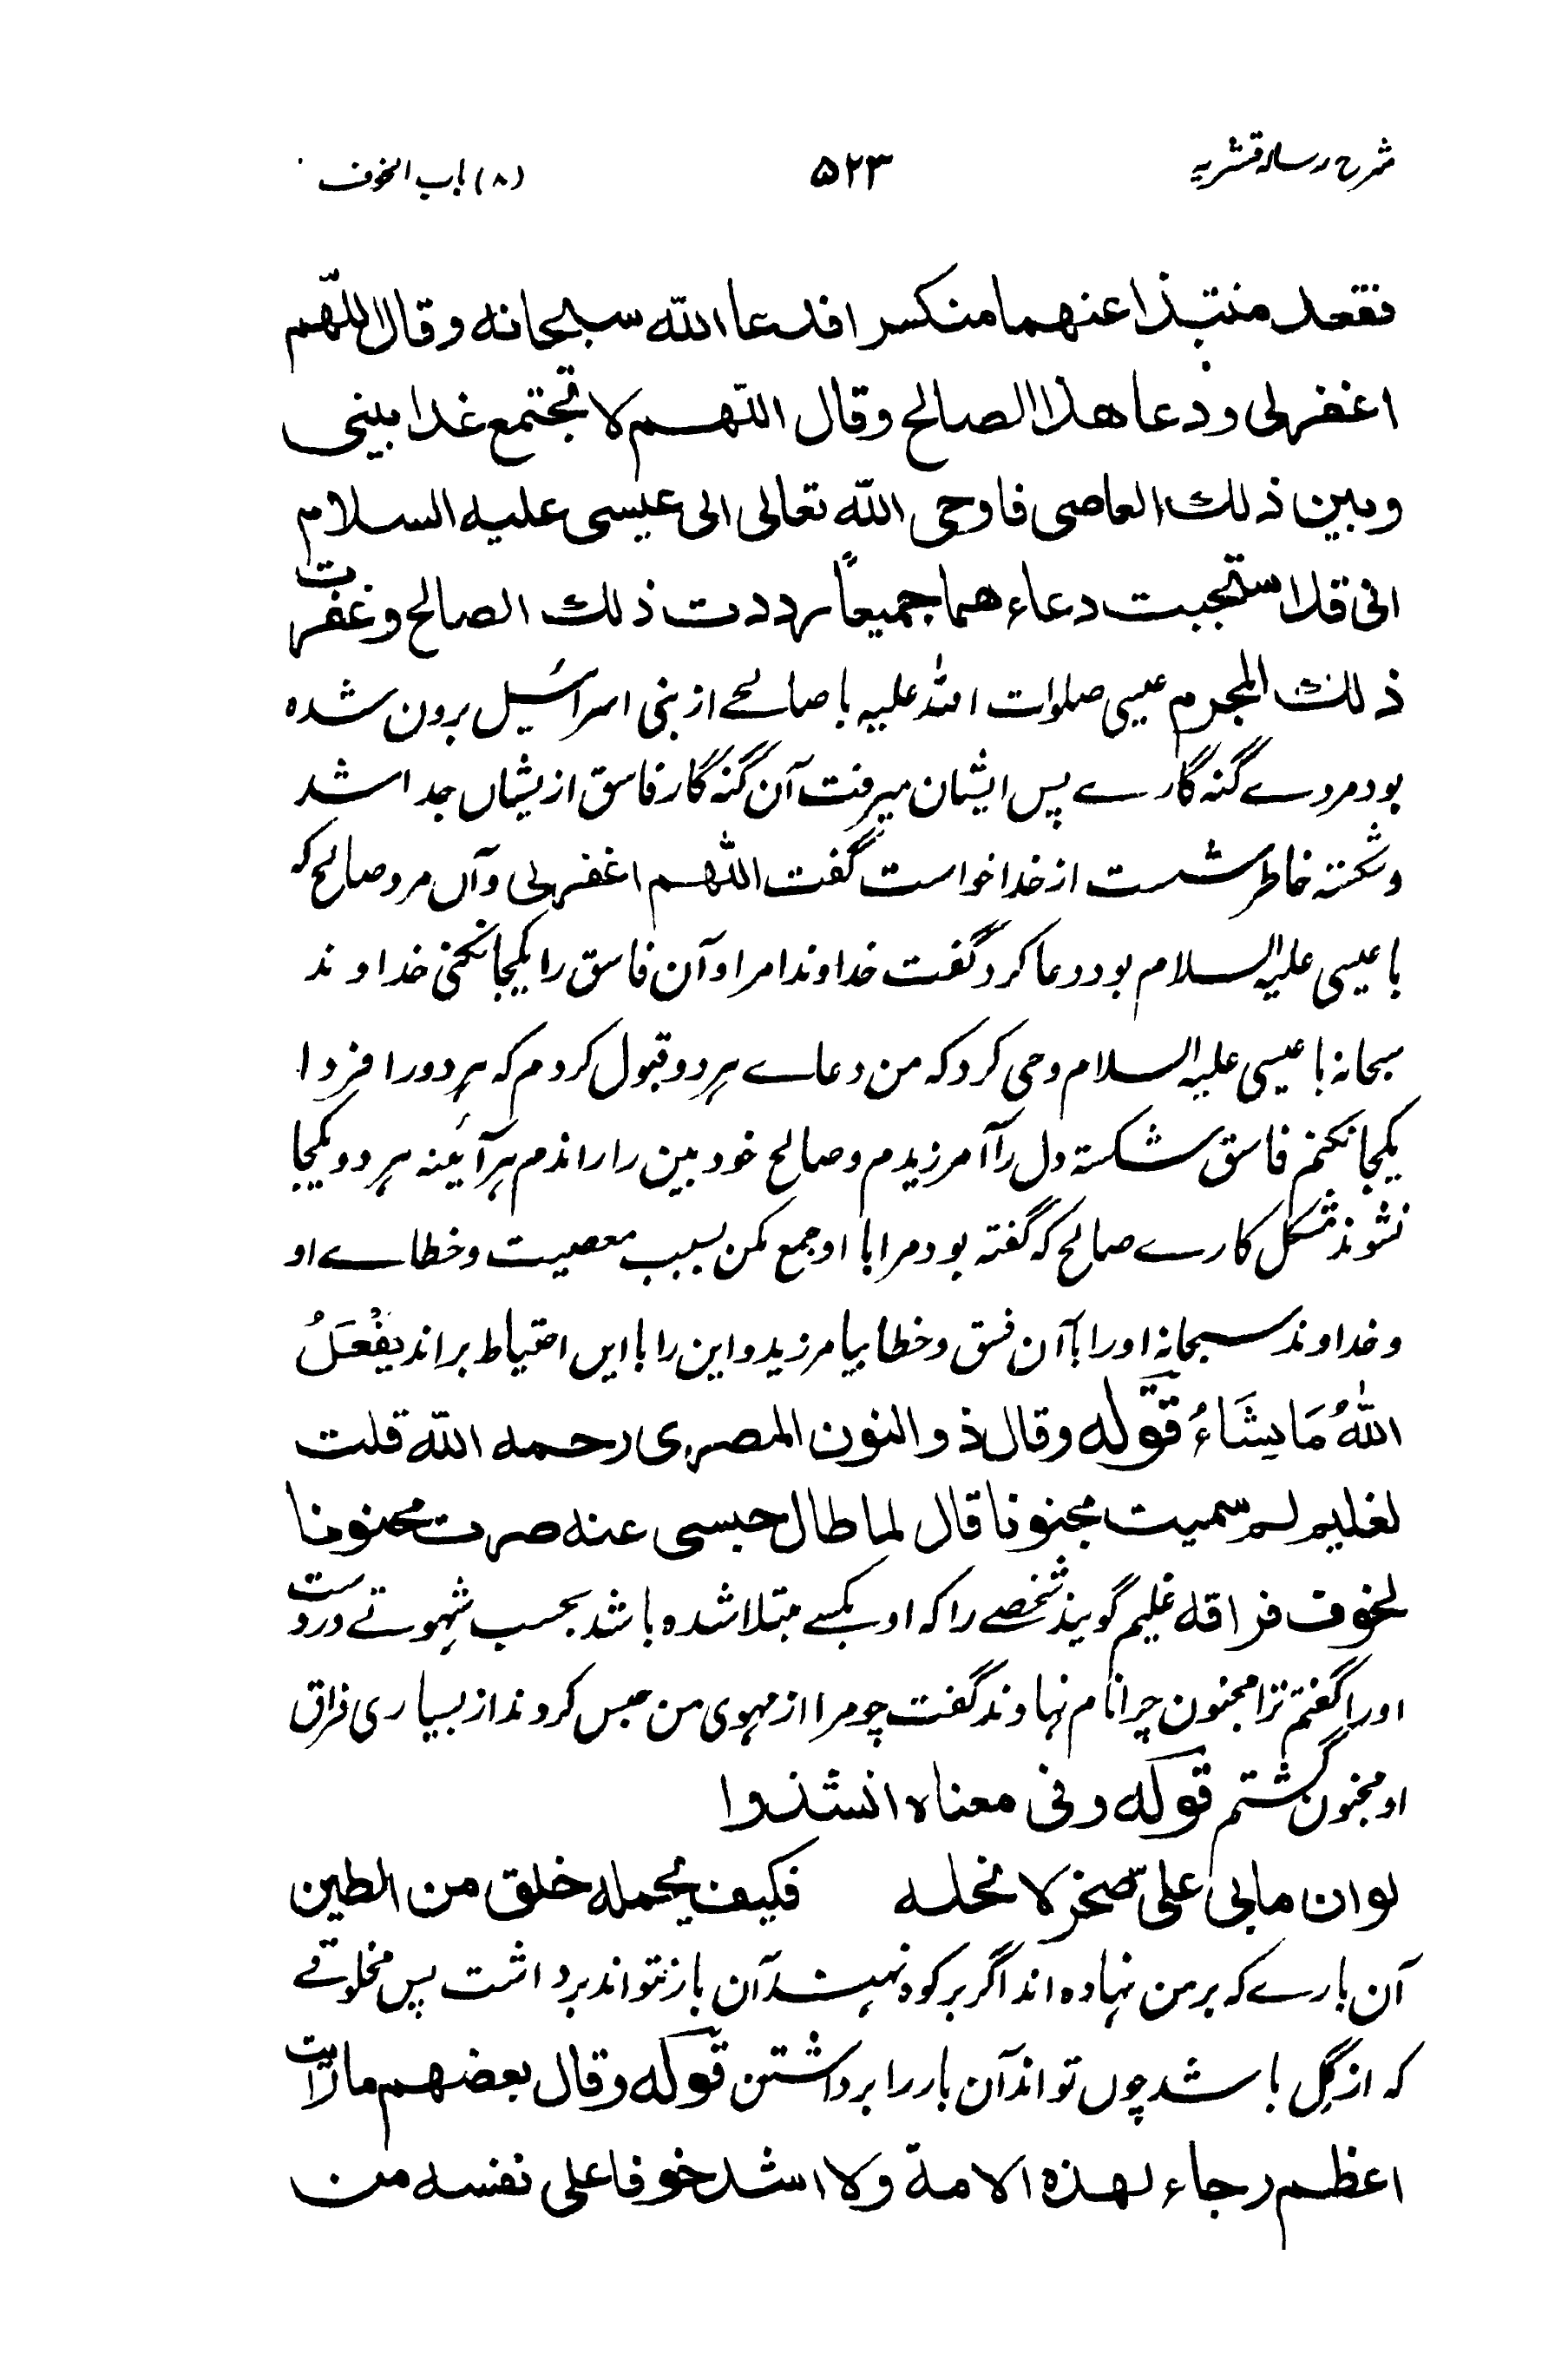 شرح رساله قشریه ۵۲۳ (۸) باب الخوف
فقعد منتبذا عنهما منكسرا فدعا الله سبحانه وقال اللّهم
اغفر لی ودعا هذا الصالح وقال اللّهم لا تجتمع غدا بینی
وبین ذلك العاصی فاوحی الله تعالی الی عیسی علیه السلام
انی قد استجبت دعاءهما جمیعاً رددت ذلك الصالح وغفرت
ذلك المجرم عیسی صلوات الله علیه با صالحے از بنی اسرائیل برون شده
بود مردے گنه گارے پس ایشان میرفت آن گنه گار فاسق ازیشاں جدا شد
وشکسته خاطر نشست از خدا خواست گفت اللّهم اغفر لی و آں مرد صالح که
با عیسی علیه السلام بود دعا کرد گفت خداوندا مرا و آن فاسق را یکجا نکنی خداوند
سبحانه با عیسی علیه السلام وحی کرد که من دعاے هر دو قبول کردم که هر دو را فردا
یکجا نکنم فاسق شکسته دل را آمرزیدم و صالح خود بین را راندم هر آئینه هر دو یکجا
نشوند مشکل کارے صالح که گفته بود مرا با او جمع مکن بسبب معصیت و خطاے او
و خداوند سبحانه او را با آن فسق و خطا بیامرزید و این را با ایں احتیاط براند یَفْعَلُ
اللهُ مَا یَشَاءُ قوله وقال ذوالنون المصری رحمه الله قلت
لغلیم لم سمیت مجنونا قال لما طال حبسی عنه صرت مجنونا
لخوف فراقه غلیم گویند شخصے را که او بکسے مبتلا شده باشد بحسب شهوتے دردست
او را گفتم ترا مجنون چرا نام نهادند گفت چو مرا از مهوی من حبس کردند از بسیاری فراق
او مجنون گشتم قوله وفی معناه انشدوا
لو ان مابی علی صخر لانحله فکیف یحمله خلق من الطین
آن بارے که بر من نهاده اند اگر بر کوه نهند آن بار نتواند برداشت پس مخلوقے
که از گِل باشد چوں تواند آن بار را برداشتن قوله وقال بعضهم ما رأیت
اعظم رجاء لهذه الامة ولا اشد خوفا علی نفسه من